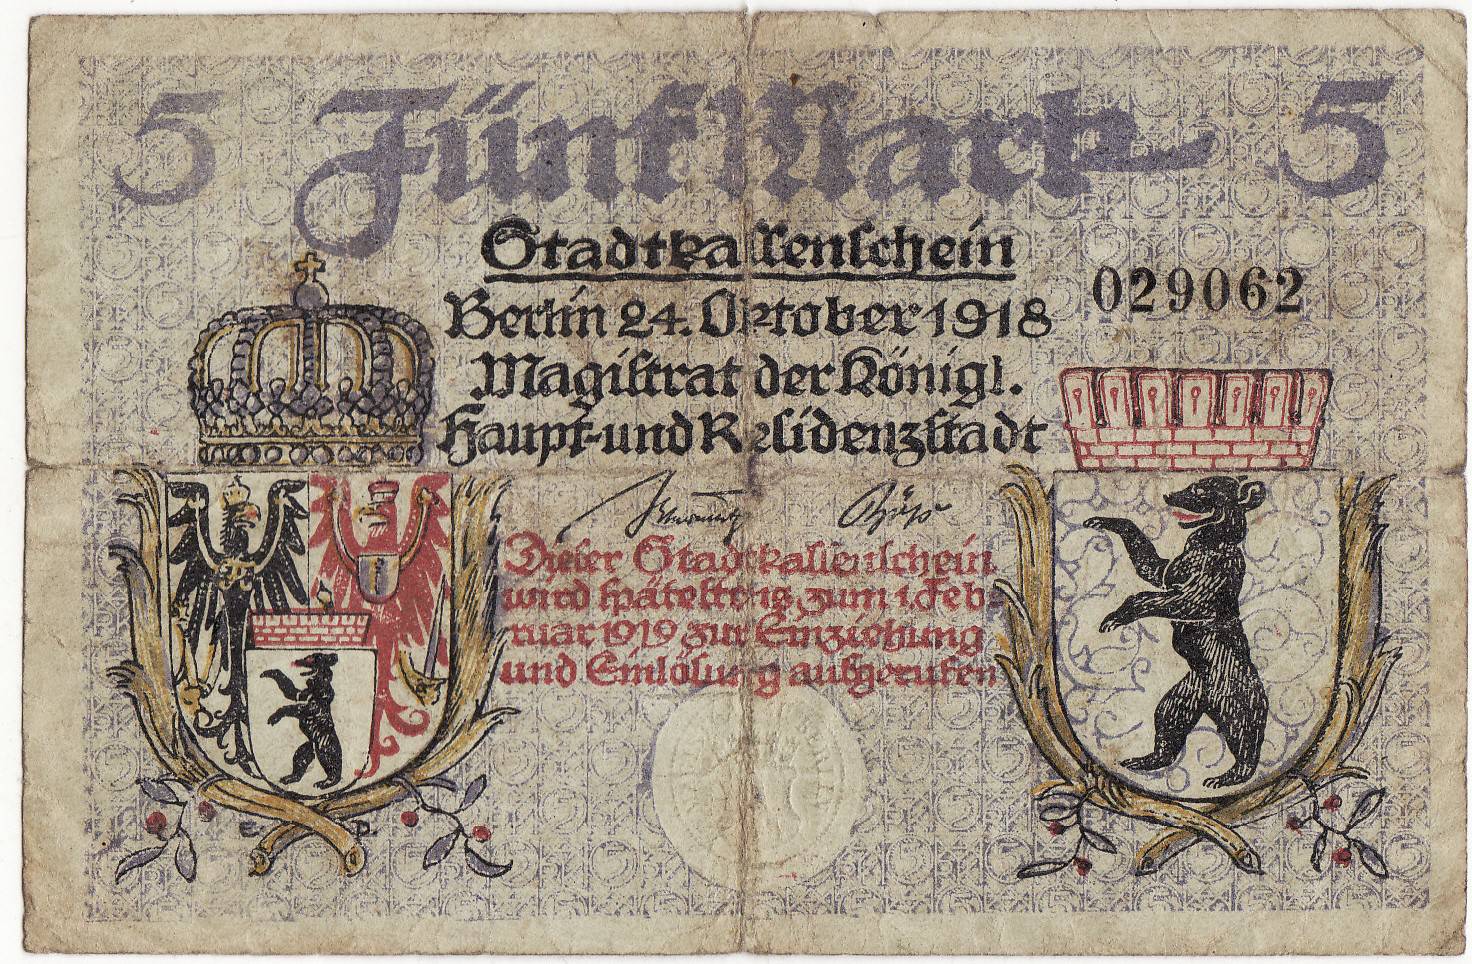 5 Fünf Mark 5
Stadtkassenschein
029062
Berlin 24. Oktober 1918
Magistrat der Königl.
Haupt- und Residenzstadt
Dieser Stadtkassenschein
wird spätestens zum 1. Feb-
ruar 1919 zur Einziehung
und Einlösung aufgerufen